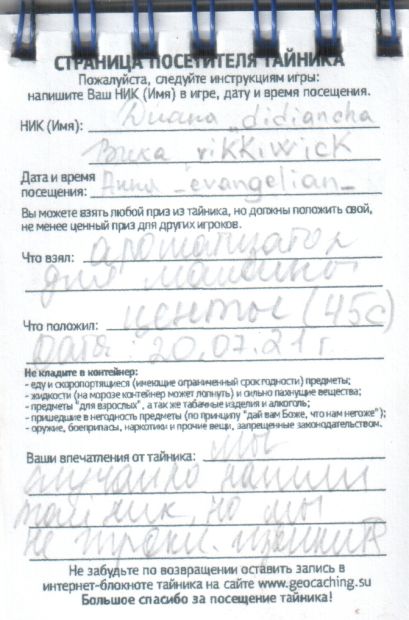 СТРАНИЦА ПОСЕТИТЕЛЯ ТАЙНИКА
Пожалуйста, следуйте инструкциям игры:
напишите Ваш НИК (Имя) в игре, дату и время посещения.
НИК (Имя): Диана _didiancha
Вика rikkiwick
Дата и время
посещения: Анна _evangelian_
Вы можете взять любой приз из тайника, но должны положить свой,
не менее ценный приз для других игроков.
Что взял: ароматизатор
для машины
Что положил: центы (45с)
Дата: 20.07.21 г
Не кладите в контейнер:
- еду и скоропортящиеся (имеющие ограниченный срок годности) предметы;
- жидкости (на морозе контейнер может лопнуть) и сильно пахнущие вещества;
- предметы "для взрослых", а так же табачные изделия и алкоголь;
- пришедшие в негодность предметы (по принципу "дай вам Боже, что нам негоже");
- оружие, боеприпасы, наркотики и прочие вещи, запрещенные законодательством.
Ваши впечатления от тайника: мы
случайно нашли
тайник, но мы
не
Не забудьте по возвращении оставить запись в
интернет-блокноте тайника на сайте www.geocaching.su
Большое спасибо за посещение тайника!